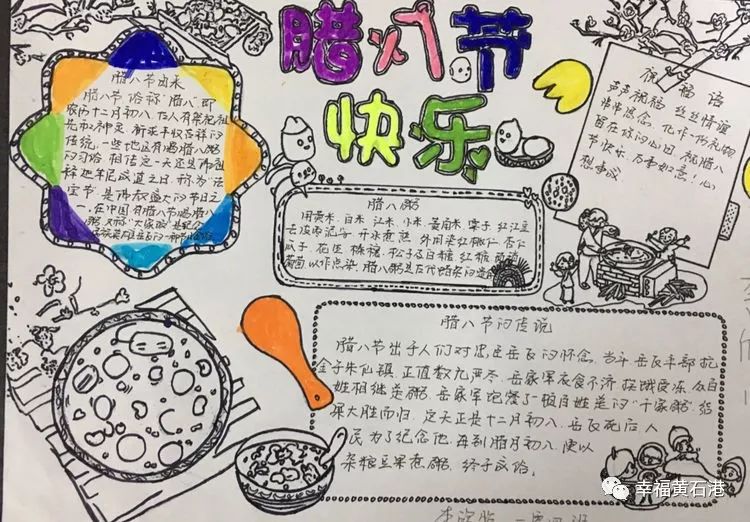 腊八节
快乐
腊八节由来
腊八节俗称"腊八"即
农历十二月初八,古人有祭祀祖
先和神灵、祈求丰收吉祥的
传统,一些地区有喝腊八粥
的习俗.相传这一天还是佛祖
释迦牟尼成道之日,称为"法
宝节"是佛教盛大的节日之
一.在中国,有腊八节喝腊八
祝福语
声声祝福 丝丝情谊
串串思念,化作一份礼物
留在你的心田,祝腊八
节快乐,万事如意!心
想事成
腊八粥
用黄米、白米、江米、小米、菱角米、栗子、红江豆
去皮枣泥等,开水煮熟,外用染红桃仁、杏仁
瓜子、花生、榛穰、松子及白糖、红糖、琐琐
葡萄以作点染,腊八粥是古代
腊八节的传说
腊八节出于人们对忠臣岳飞的怀念,当年,岳飞率部抗
金于朱仙镇,正值数九严冬,岳家军衣食不济,挨饿受冻,众百
姓相继送粥,岳家军饱餐了一顿百姓送的"千家粥",结
果大胜而归,这天正是十二月初八,岳飞死后,人
民为了纪念他,每到腊月初八,便以
杂粮豆果煮粥,终于成俗。
幸福黄石港